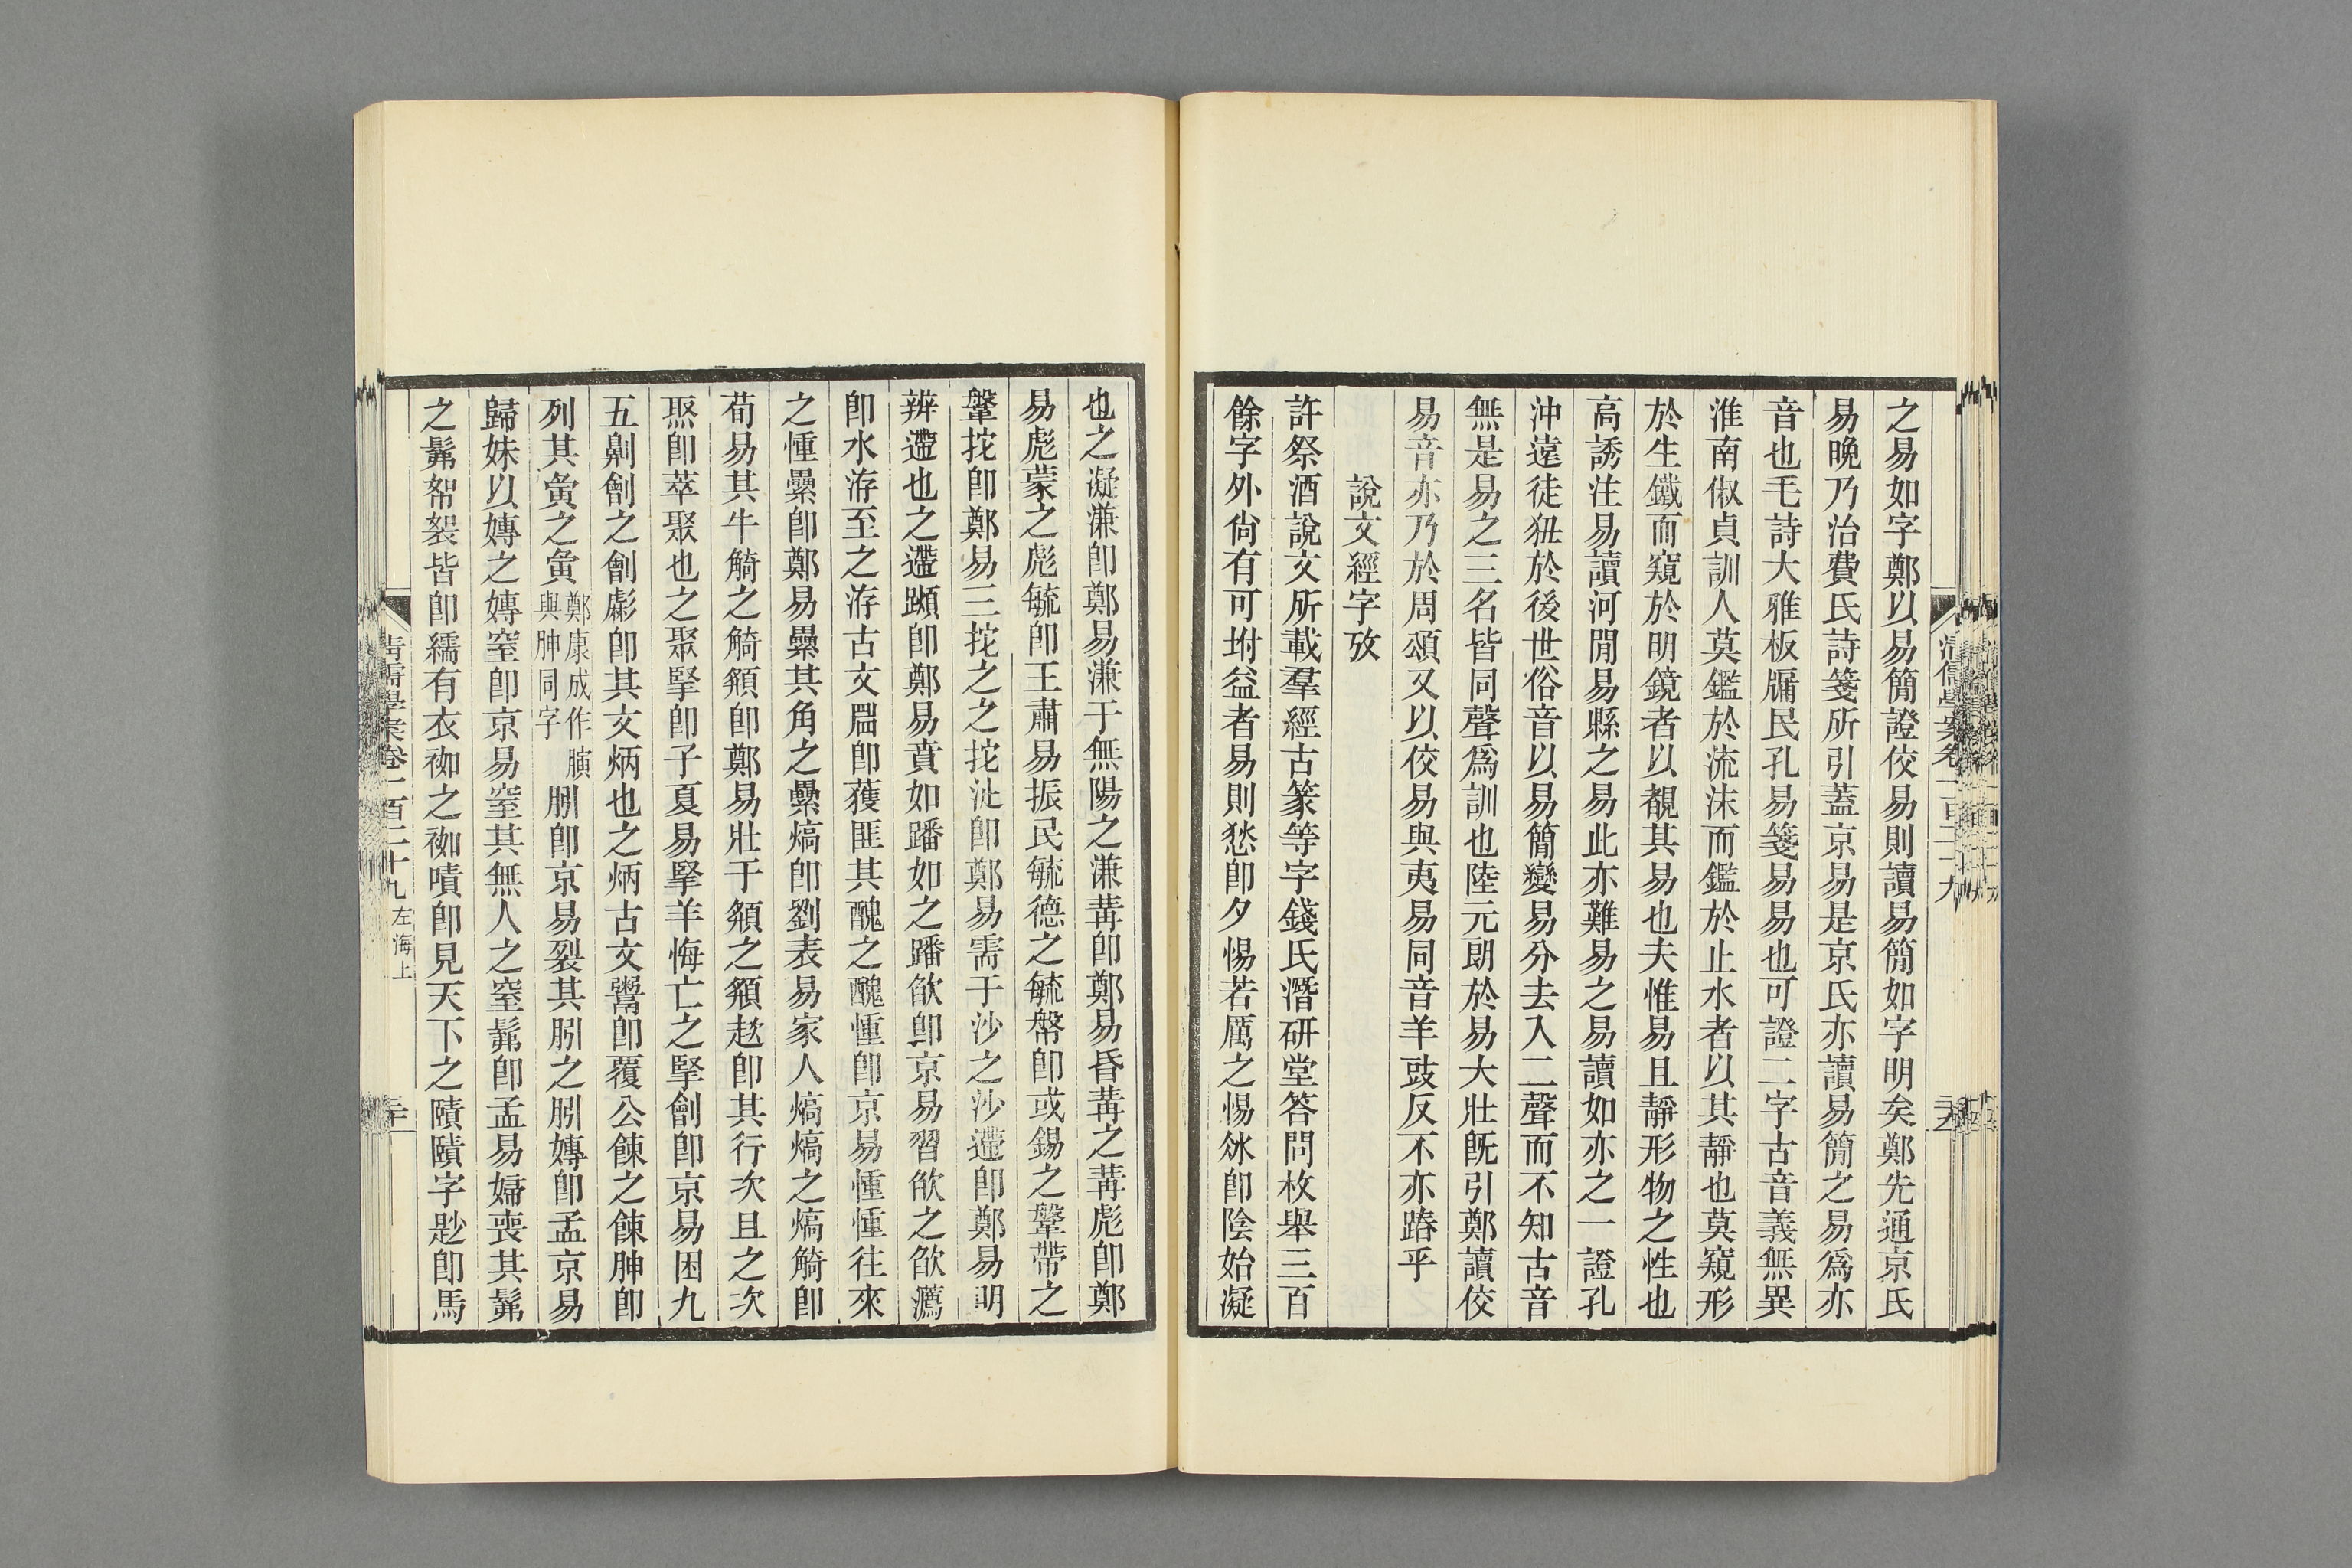 之易如字鄭以易簡證佼易則讀易簡如字明矣鄭先通京氏
易晚乃治費氏詩箋所引蓋京易是京氏亦讀易簡之易爲亦
音也毛詩大雅板牖民孔易箋易易也可證二字古音義無異
淮南俶貞訓人莫鑑於流沫而鑑於止水者以其靜也莫窺形
於生鐵而窺於明鏡者以覩其易也夫惟易且靜形物之性也
高誘注易讀河閒易縣之易此亦難易之易讀如亦之一證孔
沖遠徒狃於後世俗音以易簡變易分去入二聲而不知古音
無是易之三名皆同聲爲訓也陸元朗於易大壯旣引鄭讀佼
易音亦乃於周頌又以佼易與夷易同音羊豉反不亦踳乎
說文經字攷
許祭酒說文所載羣經古篆等字錢氏潛研堂答問枚舉三百
餘字外尙有可坿益者易則愁卽夕惕若厲之惕仌卽陰始凝
也之凝溓卽鄭易溓于無陽之溓冓卽鄭易昏冓之冓彪卽鄭
易彪蒙之彪毓卽王肅易振民毓德之毓幋卽或錫之鞶帶之
鞶拕卽鄭易三拕之之拕沚卽鄭易需于沙之沙遰卽鄭易明
辨遰也之遰蹞卽鄭易賁如蹯如之蹯欿卽京易習欿之欿瀳
卽水洊至之洊古文𦣞卽獲匪其醜之醜憧卽京易憧憧往來
之憧纍卽鄭易纍其角之纍熇卽劉表易家人熇熇之熇觭卽
荀易其牛觭之觭頯卽鄭易壯于頯之頯趑卽其行次且之次
焣卽萃聚也之聚掔卽子夏易掔羊悔亡之掔劊卽京易困九
五劓劊之劊彪卽其文炳也之炳古文鬻卽覆公餗之餗胂卽
列其夤之夤鄭康成作䐹
與胂同字䏖卽京易裂其䏖之䏖嫥卽孟京易
歸妹以嫥之嫥窒卽京易窒其無人之窒髴卽孟易婦喪其髴
之髴帤袽皆卽繻有衣袽之袽嘖卽見天下之賾賾字尟卽馬
清儒學案卷一百二十九 左海上